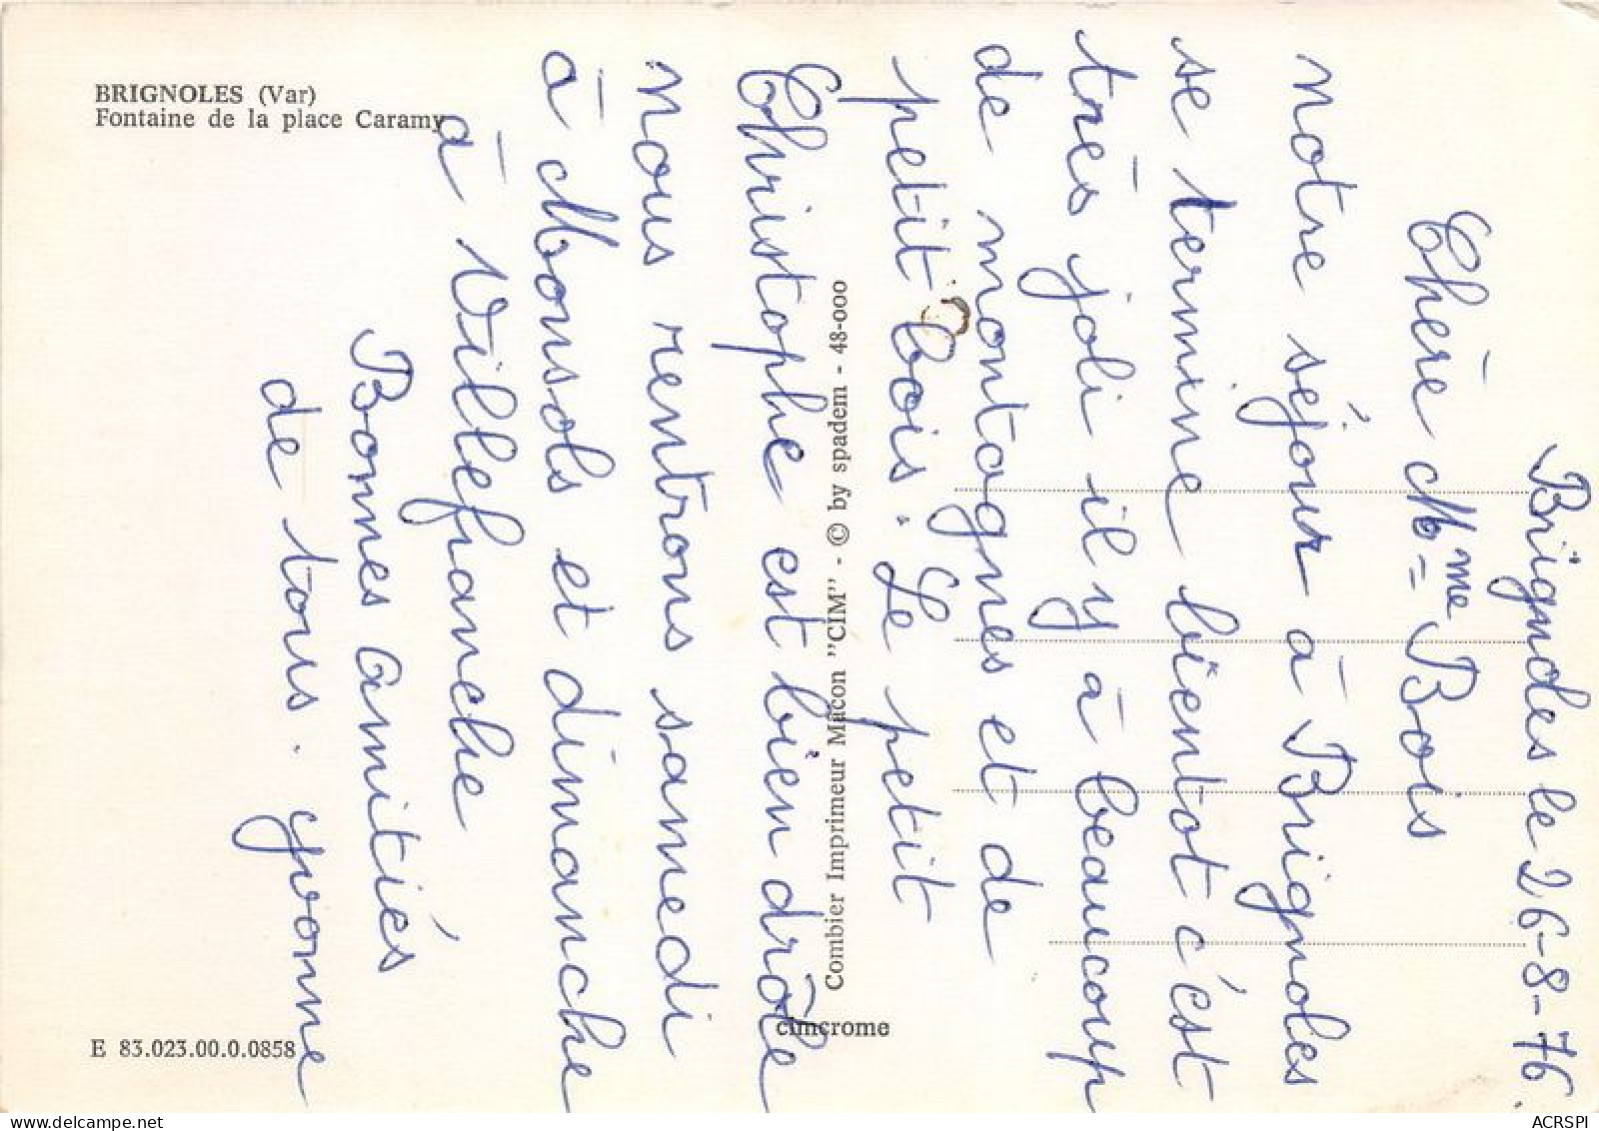 BRIGNOLES (Var)
Fontaine de la place Caramy
Brignoles le 26-8-76.
Chère Mme Bois
notre séjour à Brignoles
se termine bientot c'est
très joli il y à beaucoup
de montagnes et de
petit bois. Le petit
Christophe est bien drôle
nous rentrons samedi
à Monsols et dimanche
à Villefranche
Bonnes amitiés
de tous. Yvonne
Combier Imprimeur Mâcon "CIM" - © by spadem - 48-000
cimcrome
E 83.023.00.0.0858
ACRSPI